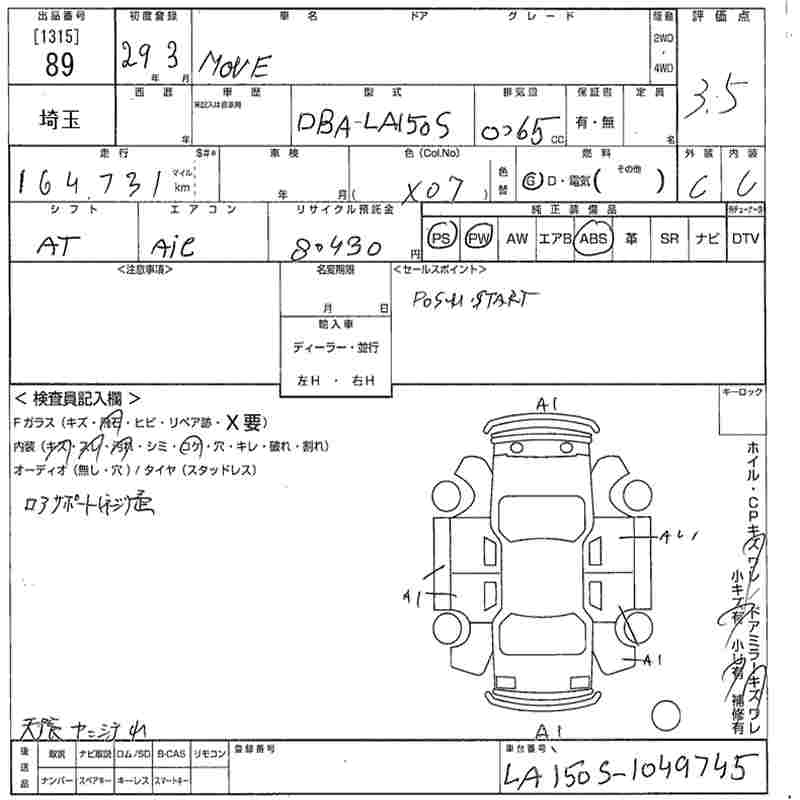 出品番号 初度登録 車名 ドア グレード 駆動 評価点
[1315] 89 29 3 年 月 MOVE 2WD ・ 4WD 3.5
西暦 車歴 型式 排気量 保証書 定員
埼玉 年 未記入は自家用 DBA-LA150S 0065 CC 有・無 名
走行 S## 車検 色(Col.No) 燃料 外装 内装
164,731 マイル km 年 月 (X07) 色替 G D・電気( その他 ) C C
シフト エアコン リサイクル預託金 純正装備品
AT A/C 80430 円 PS PW AW エアB ABS 革 SR ナビ DTV
<注意事項> 名変期限 <セールスポイント>
月 日 PUSH START
輸入車
ディーラー・並行
左H ・ 右H
キーロック
< 検査員記入欄 > A1
Fガラス (キズ・飛石・ヒビ・リペア跡・X要)
内装 (キズ・スレ・汚れ・シミ・コゲ・穴・キレ・破れ・割れ)
オーディオ (無し・穴) / タイヤ (スタッドレス)
ロアサポート
AU1
A1
A1
ホイル・CPキズワレ / ドアミラーキズワレ
小キズ有 小凹有 補修有
天張 ヤニ
A1
後送品 取説 ナビ取説 ロム/SD B-CAS リモコン 登録番号 車台番号
ナンバー スペアキー キーレス スマートキー LA150S-1049745